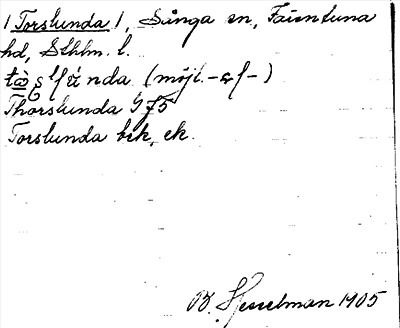 /Torslunda/, Sånga sn, Färentuna
hd, Sthlm. l.
(möjl. -af-)
Thorslunda G 75
Torslunda bok, ek.
B. Hesselman 1905